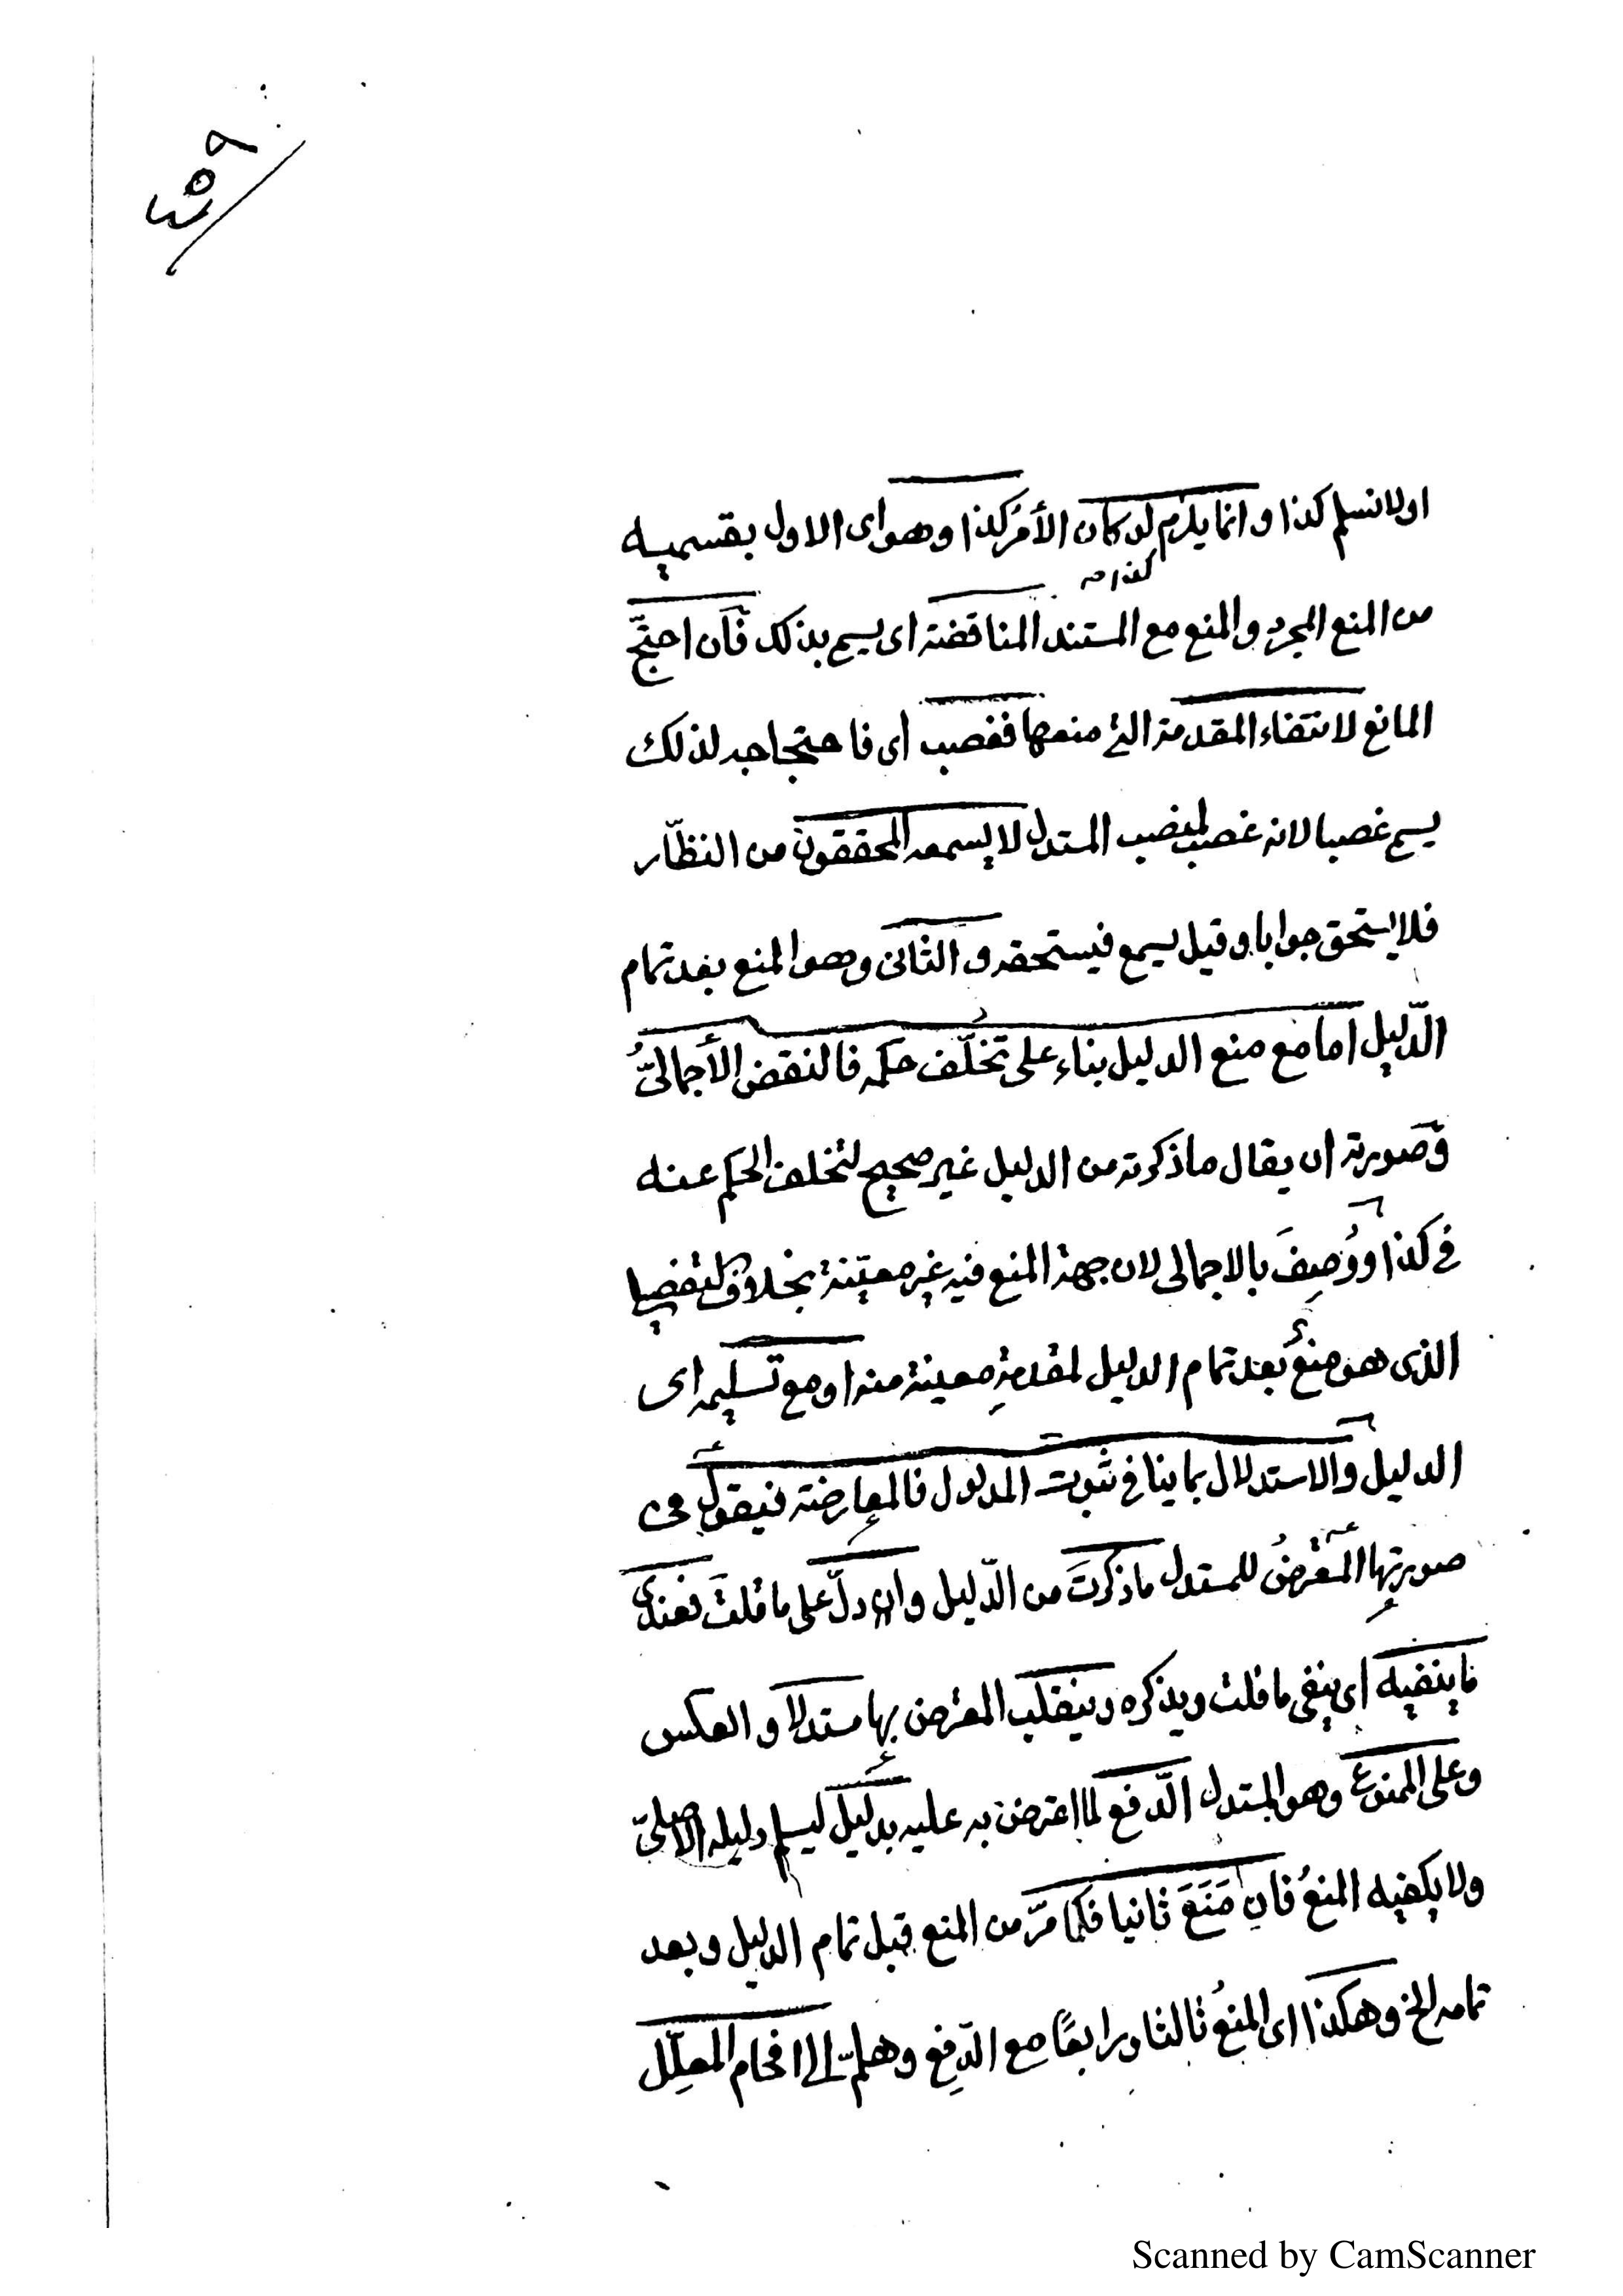 ٤٥٩
او لا نسلم كذا و انما يلزم لو كان الأمرُ كذا وهو اى الاول بقسميه
كذا صه
من المنع المجرد والمنع مع المستند المناقضة اى يسمى بذلك فَاِن احتجَّ
المانع لانتفاء المقدمة التى منعها فغصب أى فاحتجاجه لذلك
يسمى غصبا لانه غصب لمنصب المستدل لا يسمعه المحققون من النظّار
فلا يستحق جوابا و قيل يسمع فيستحقه و الثانى وهو المنع بعد تمام
الدّليل اما مع منع الدليل بناء على تخلُّف حكمه فالنقض الأجمالىُّ
وصورته ان يقال ما ذكرته من الدليل غير صحيح لتخلف الحكم عنه
فى كذا و وُصِفَ بالاجمالى لان جهة المنع فيه غير معيّنة بخلاف التفصيلى
الذى هو منعٌ بعد تمام الدليل لمقدمةٍ معينة منه او مع تسليمه اى
الدليل والاستدلال بما ينافى ثبوت المدلول فالمعارضة فيقول فى
صورتها المعترضُ للمستدل ما ذكرتَ من الدّليل وان دلّ على ما قلتَ فعندى
ما ينفيه اى ينفى ما قلت ويذكره وينقلب المعترض بها مستدلا و العكس
وعلى الممنوع وهو المستدل الدّفع لما اعترض به عليه بدليل ليسلم دليله الاصلىّ
ولا يكفيه المنعُ فان مَنَعَ ثانيا فكما مرّ من المنع قبل تمام الدليل و بعد
تمامه الخ وهكذا اى المنعُ ثالثا ورابعًا مع الدّفعِ وهلمّ الى افحام المعلِّل
Scanned by CamScanner